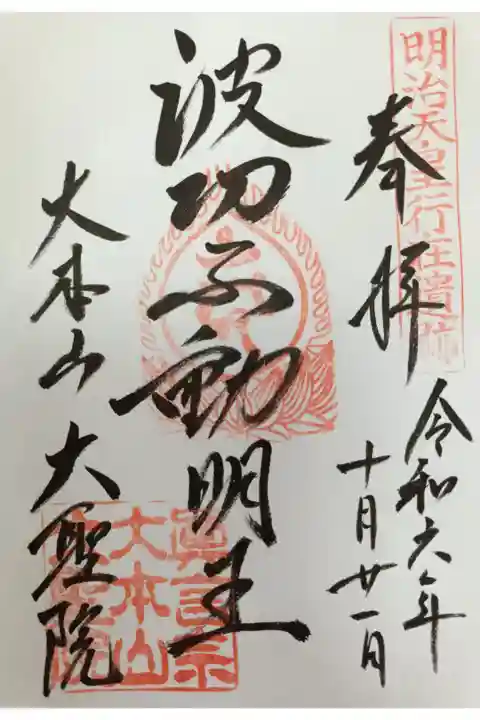 明治天皇行在遺跡
奉拝
令和六年
十月廿一日
波切不動明王
大本山 大聖院
真言宗
大本山